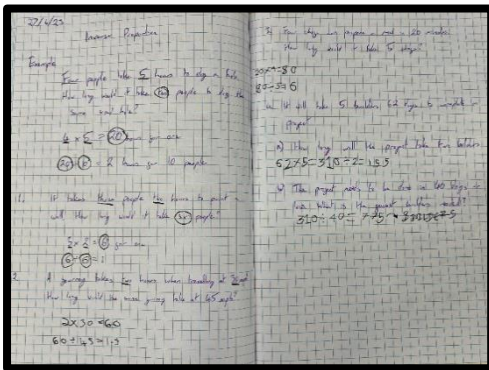 27/6/23
Inverse Proportion
Example
Four people take 5 hours to dig a hole
How long would it take 10 people to dig the
same sized hole?
4 × 5 = 20 hours for one
20 ÷ 10 = 2 hours for 10 people
1. It takes three people two hours to paint a
wall How long would it take six people?
3 × 2 = 6 for one
6 ÷ 6 = 1
2. A journey takes two hours when travelling at
How long would the same journey take at 45 mph?
2×30=60
60÷45=1.3
3. Four chefs can prepare a meal in 20 minutes
How long would it take 5 chefs?
20×4=80
It will take 5 builders 62 days to complete a
project
a) How long will the project take two builders
62×5=310÷2=155
b) The project needs to be done in 40 days or
less. What is the fewest builders needed?
310÷40=7.75